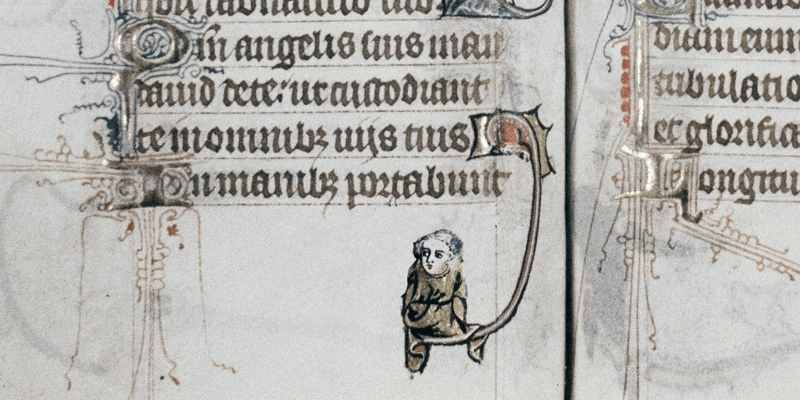 Qm angelis suis man
dauid dete: ut custodiant
te inomnibz uijs tuis
In manibz portabunt
diam eum
tribulatio
et glorifica
Longitu